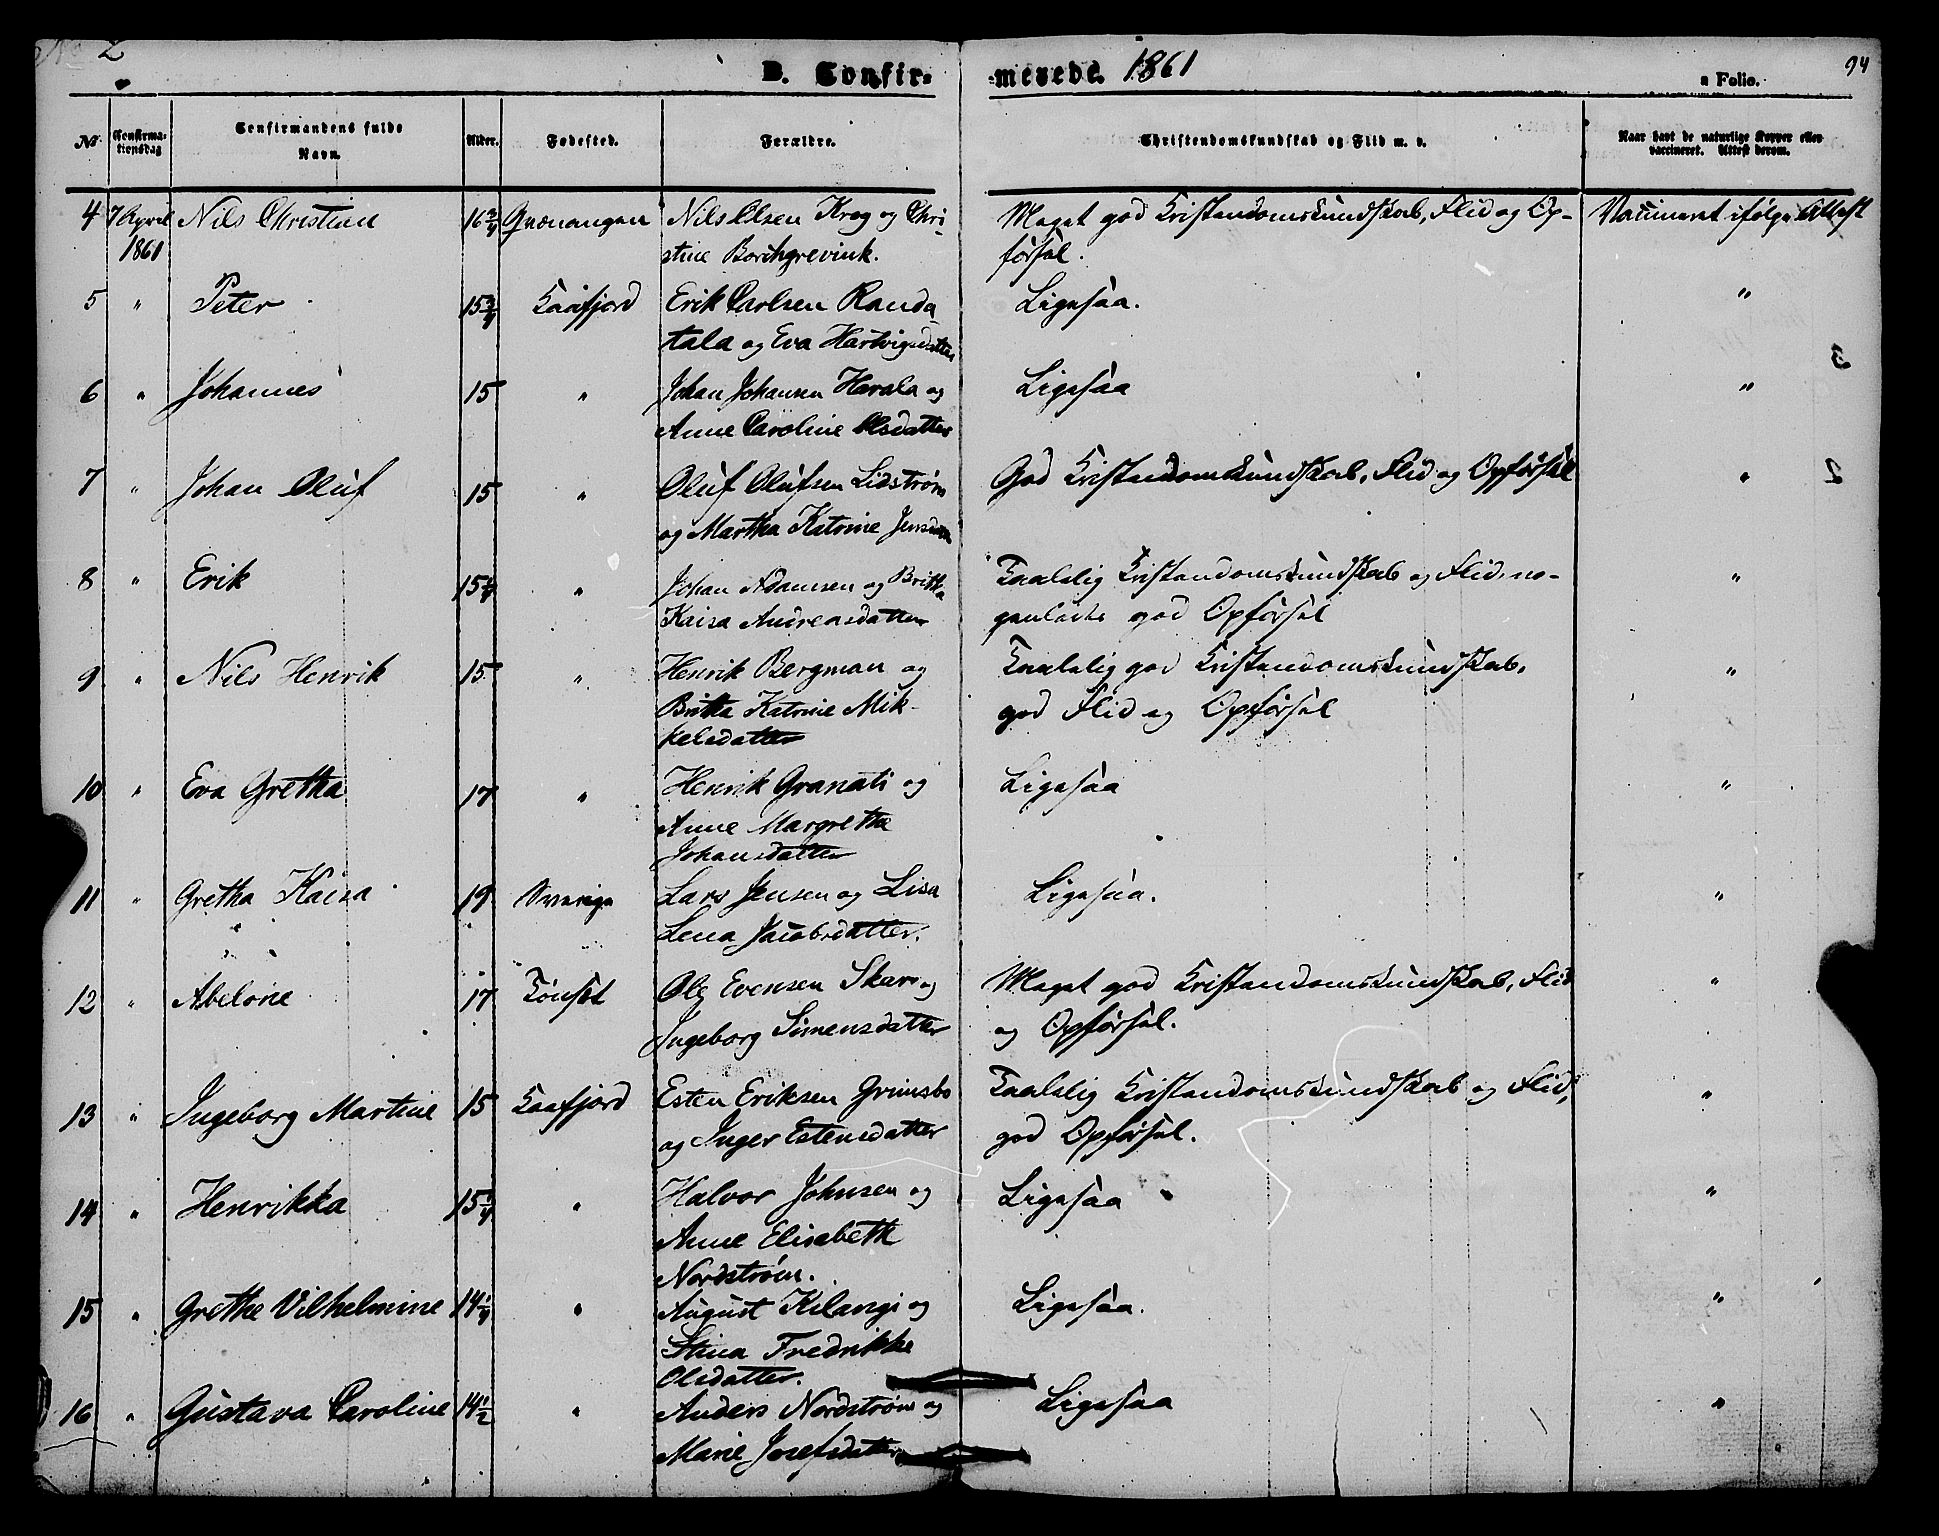 No 2
B. Confir- merede. 1861
94
a Folio.
No.
Confirma-
tionsdag
Confirmandens fulde
Navn.
Alder.
Fødested.
Forældre.
Christendomskundskab og Flid m. v.
Naar havt de naturlige Kopper eller
vaccineret. Attest derom.
4 7 April Nils Christian 16 3/4 Qvænangen Nils Olsen Krog og Chri- Meget god Kristendomskundskab, Flid og Op- Vaccineret ifølge Attest
1861 stine Borchgrevink. førsel.
5 " Peter 15 3/4 Kaafjord Erik Carlsen Randa- Ligesaa. "
tala og Eva Hartvigsdatter
6 " Johannes 15 " Johan Johansen Herala og Ligesaa "
Anne Caroline Olsdatter
7 " Johan Oluf 15 " Oluf Olufsen Lidstrøm God Kristendomskundskab, Flid og Opførsel "
og Martha Katrine Jensdatter
8 " Erik 15 " Johan Adamsen og Britha Taalelig Kristendomskundskab og Flid, no- "
Kaisa Andreasdatter genledes god Opførsel
9 " Nils Henrik 15 " Henrik Bergman og Taalelig god Kristendomskundskab, "
Britta Katrine Mik- god Flid og Opførsel
kelsdatter
10 " Eva Gretha 17 " Henrik Granati og Ligesaa "
Anne Margrethe
Johansdatter
11 " Gretha Kaisa 19 Sverige Lars Jensen og Lisa Ligesaa. "
Lena Jacobsdatter.
12 " Abelone 17 Tönset Ole Evensen Skar og Meget god Kristendomskundskab, Flid "
Ingeborg Simensdatter og Opførsel.
13 " Ingeborg Martine 15 Kaafjord Esten Eriksen Grimsbo Taalelig Kristendomskundskab og Flid, "
og Inger Estensdatter god Opførsel.
14 " Henrikka 15 1/4 " Halvor Johnsen og Ligesaa "
Anne Elisabeth
Nordstrøm.
15 " Grethe Vilhelmine 14 1/4 " August Kilangi og Ligesaa. "
Stina Fredrikke
Olsdatter.
16 " Gustava Caroline 14 1/2 " Anders Nordstrøm og Ligesaa "
Marie Josefsdatter